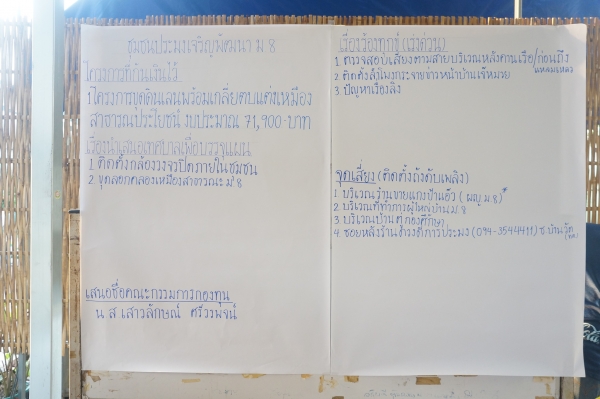 ชุมชนประมงเจริญพัฒนา ม 8
โครงการที่กันเงินไว้
1 โครงการขุดดินเลนพร้อมเกลี่ยตบแต่งเหมือง
สาธารณประโยชน์ งบประมาณ 71,900.-บาท
เรื่องนำเสนอเทศบาลเพื่อบรรจุแผน
1. ติดตั้งกล้องวงจรปิดภายในชุมชน
2. ขุดลอกคลองเหมืองสาธารณะ ม. 8
เสนอชื่อคณะกรรมการกองทุน
น ส เสาวลักษณ์ ศรีวรพจน์
เรื่องร้องทุกข์ (เร่งด่วน)
1. ตรวจสอบเสียงตามสายบริเวณหลังคานเรือ/ก่อนถึง
แหลม
2 ติดตั้งลำโพงกระจายข่าวหน้าบ้านเจ๊หมวย
3 ปัญหาเรื่องลิง
จุดเสี่ยง (ติดตั้งถังดับเพลิง)
1. บริเวณร้านขายแกงป้าแอ๊ว ( ผญ. ม 8 )*
2. บริเวณที่ทำการผู้ใหญ่บ้าน ม. 8
3. บริเวณบ้าน กองศึกษา
4. ซอยหลังร้าน การประมง (094-3544411) ซ. บ้าน